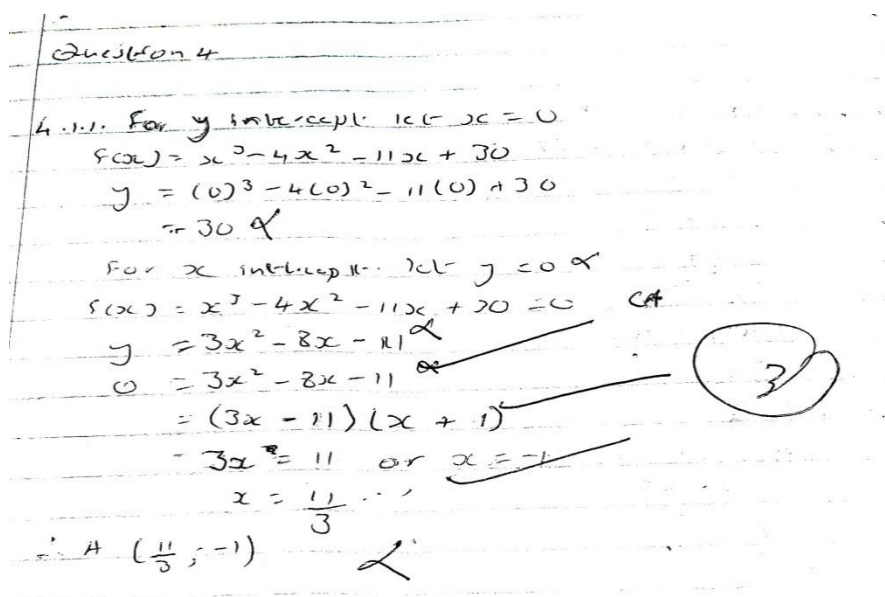 Question 4
4.1.1. For y intercept let x = 0
f(x) = x³ - 4x² - 11x + 30
y = (0)³ - 4(0)² - 11(0) + 30
= 30
For x intercept let y = 0
f(x) = x³ - 4x² - 11x + 30 = 0 CA
y = 3x² - 8x - 11
0 = 3x² - 8x - 11
= (3x - 11)(x + 1)
3x = 11 or x = -1
x = 11/3
3
∴ A (11/3 ; -1)